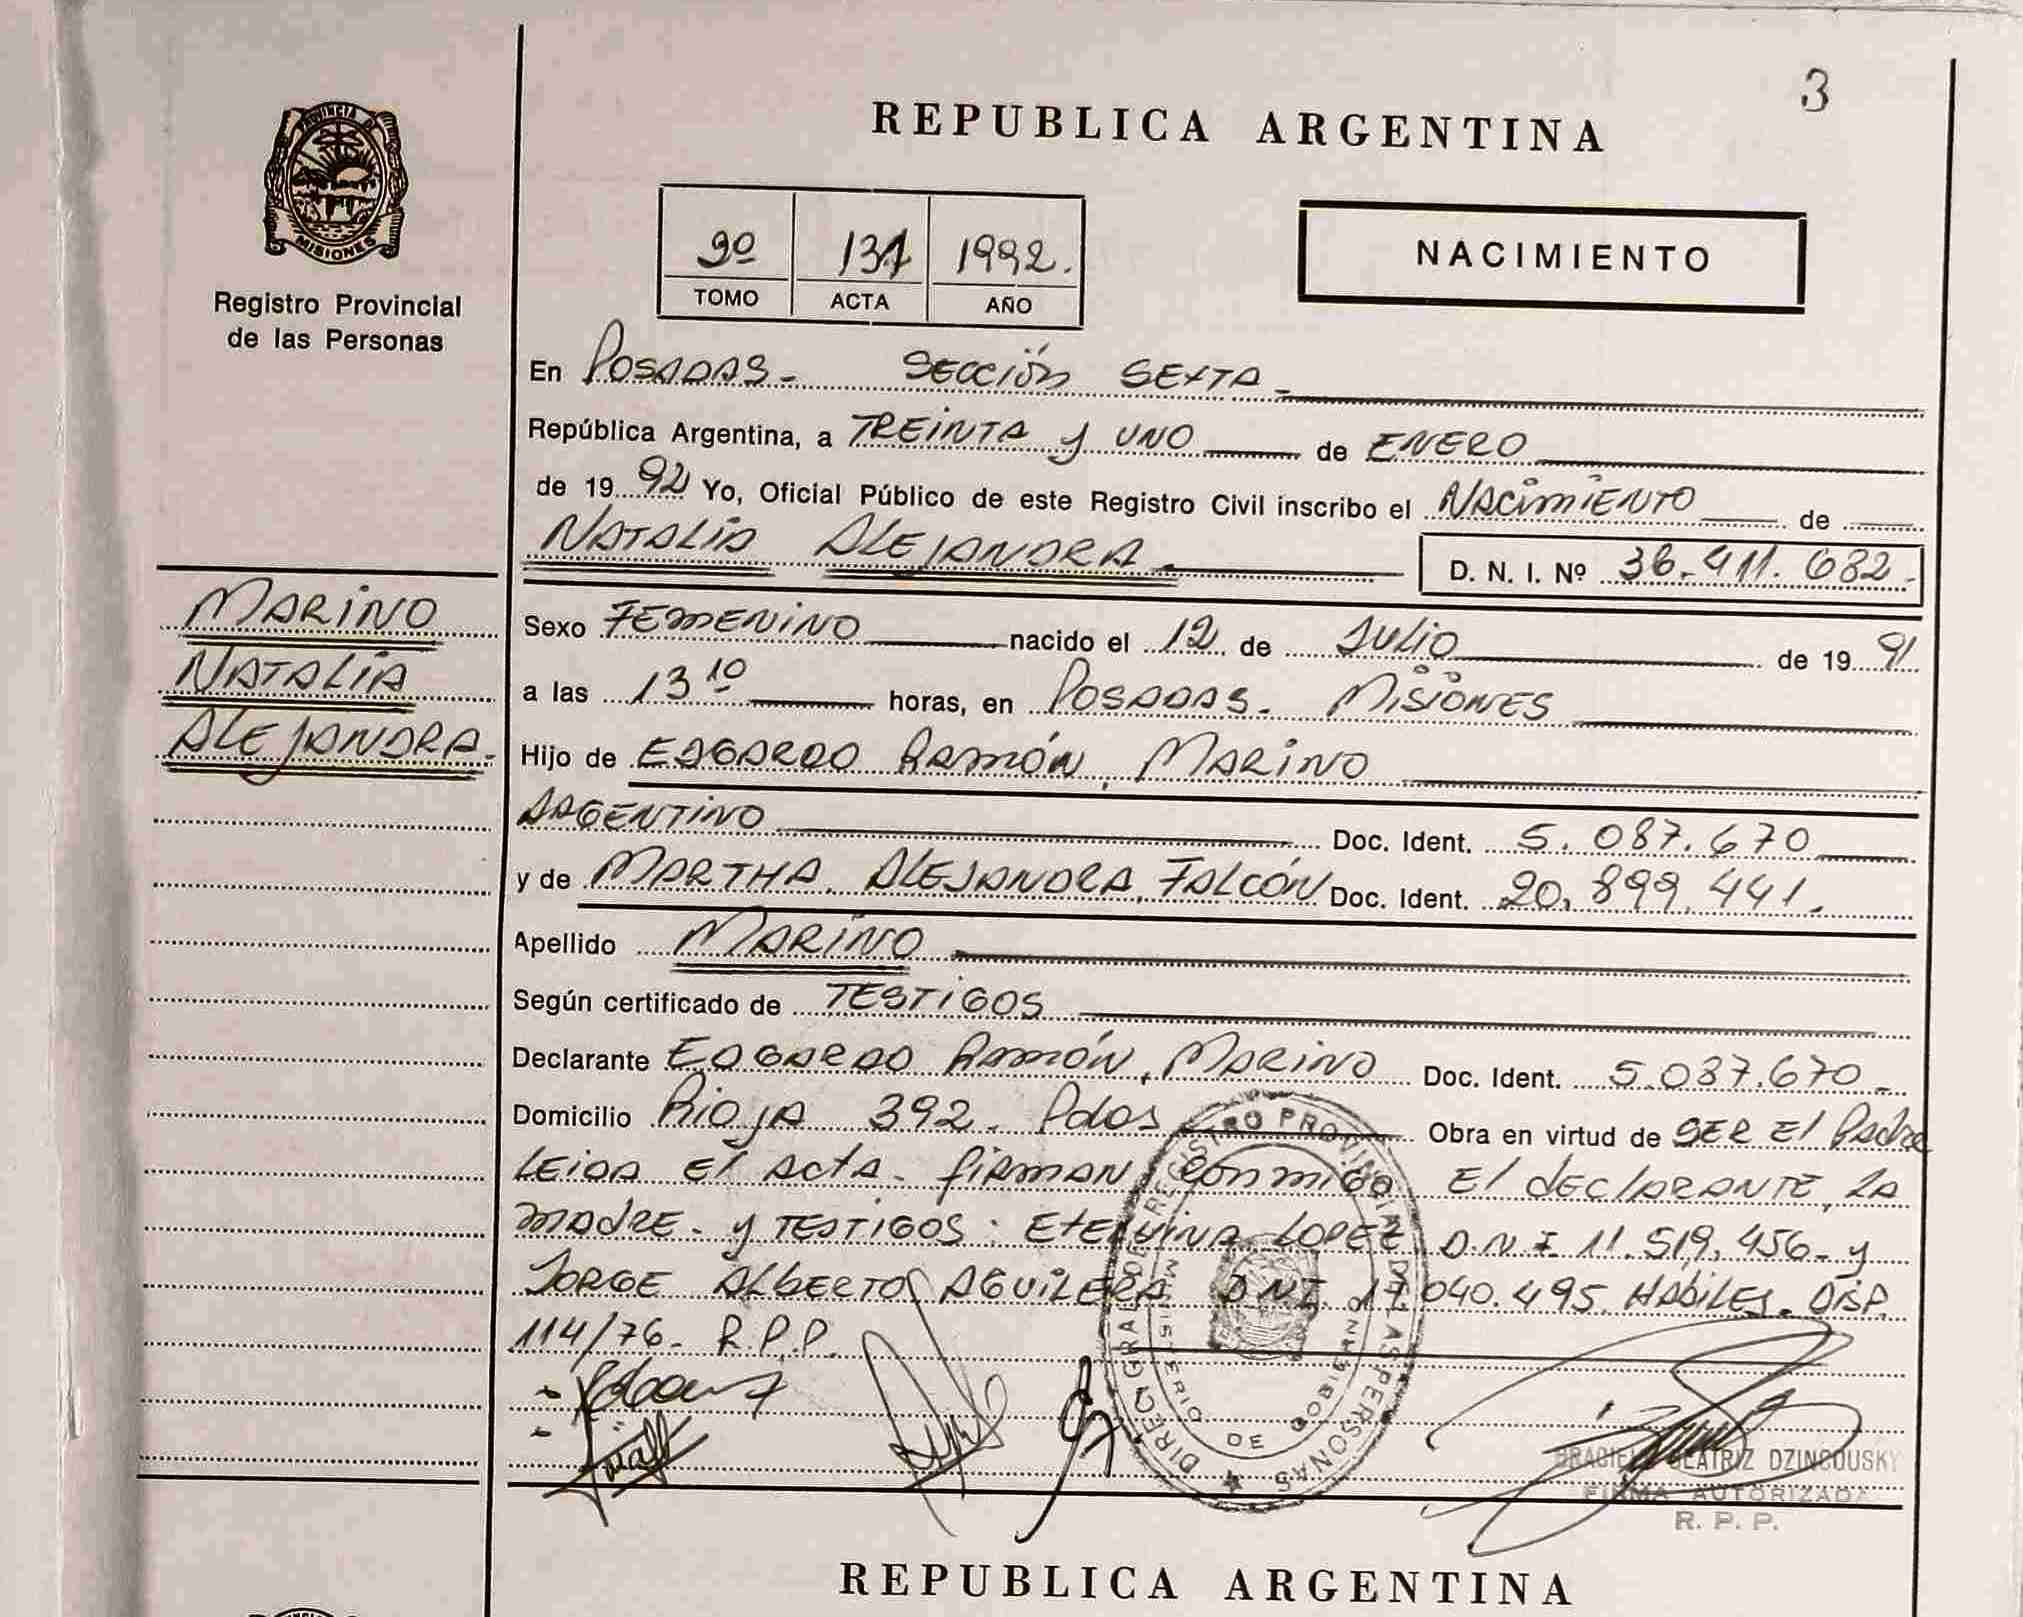 3
REPUBLICA ARGENTINA
PROVINCIA DE
MISIONES
Registro Provincial
de las Personas
9º 131 1992.
TOMO ACTA AÑO
NACIMIENTO
En POSADAS- SECCIÓN SEXTA-
República Argentina, a TREINTA y UNO de ENERO
de 1992 Yo, Oficial Público de este Registro Civil inscribo el NACIMIENTO de
NATALIA ALEJANDRA- D. N. I. Nº 36.411.682.-
MARINO
NATALIA
ALEJANDRA-
Sexo FEMENINO nacido el 12 de JULIO de 1991
a las 13 10 horas, en POSADAS- MISIONES
Hijo de EDGARDO RAMÓN, MARINO
ARGENTINO Doc. Ident. 5.087.670
y de MARTHA ALEJANDRA, FALCÓN Doc. Ident. 20.899.441.
Apellido MARINO
Según certificado de TESTIGOS
Declarante EDGARDO RAMÓN, MARINO Doc. Ident. 5.087.670-
Domicilio Rioja 392. Pdas Obra en virtud de SER El Padre
LEIDA El ACTA- FIRMAN CONMIGO El DEClARANTE, LA
MADRE- y TESTIGOS: ETELVINA LOPEZ D.N.I 11.519.456- y
JORGE ALBERTO AGUILERA D.N.I. 17.040.495. HABILES- DISP.
114/76- R.P.P.
DIREC. GRAL. DE REGISTRO PROVINCIAL DE LAS PERSONAS
MINISTERIO DE GOBIERNO
BEATRIZ DZINCOUSKY
FIRMA AUTORIZADA
R. P. P.
REPUBLICA ARGENTINA